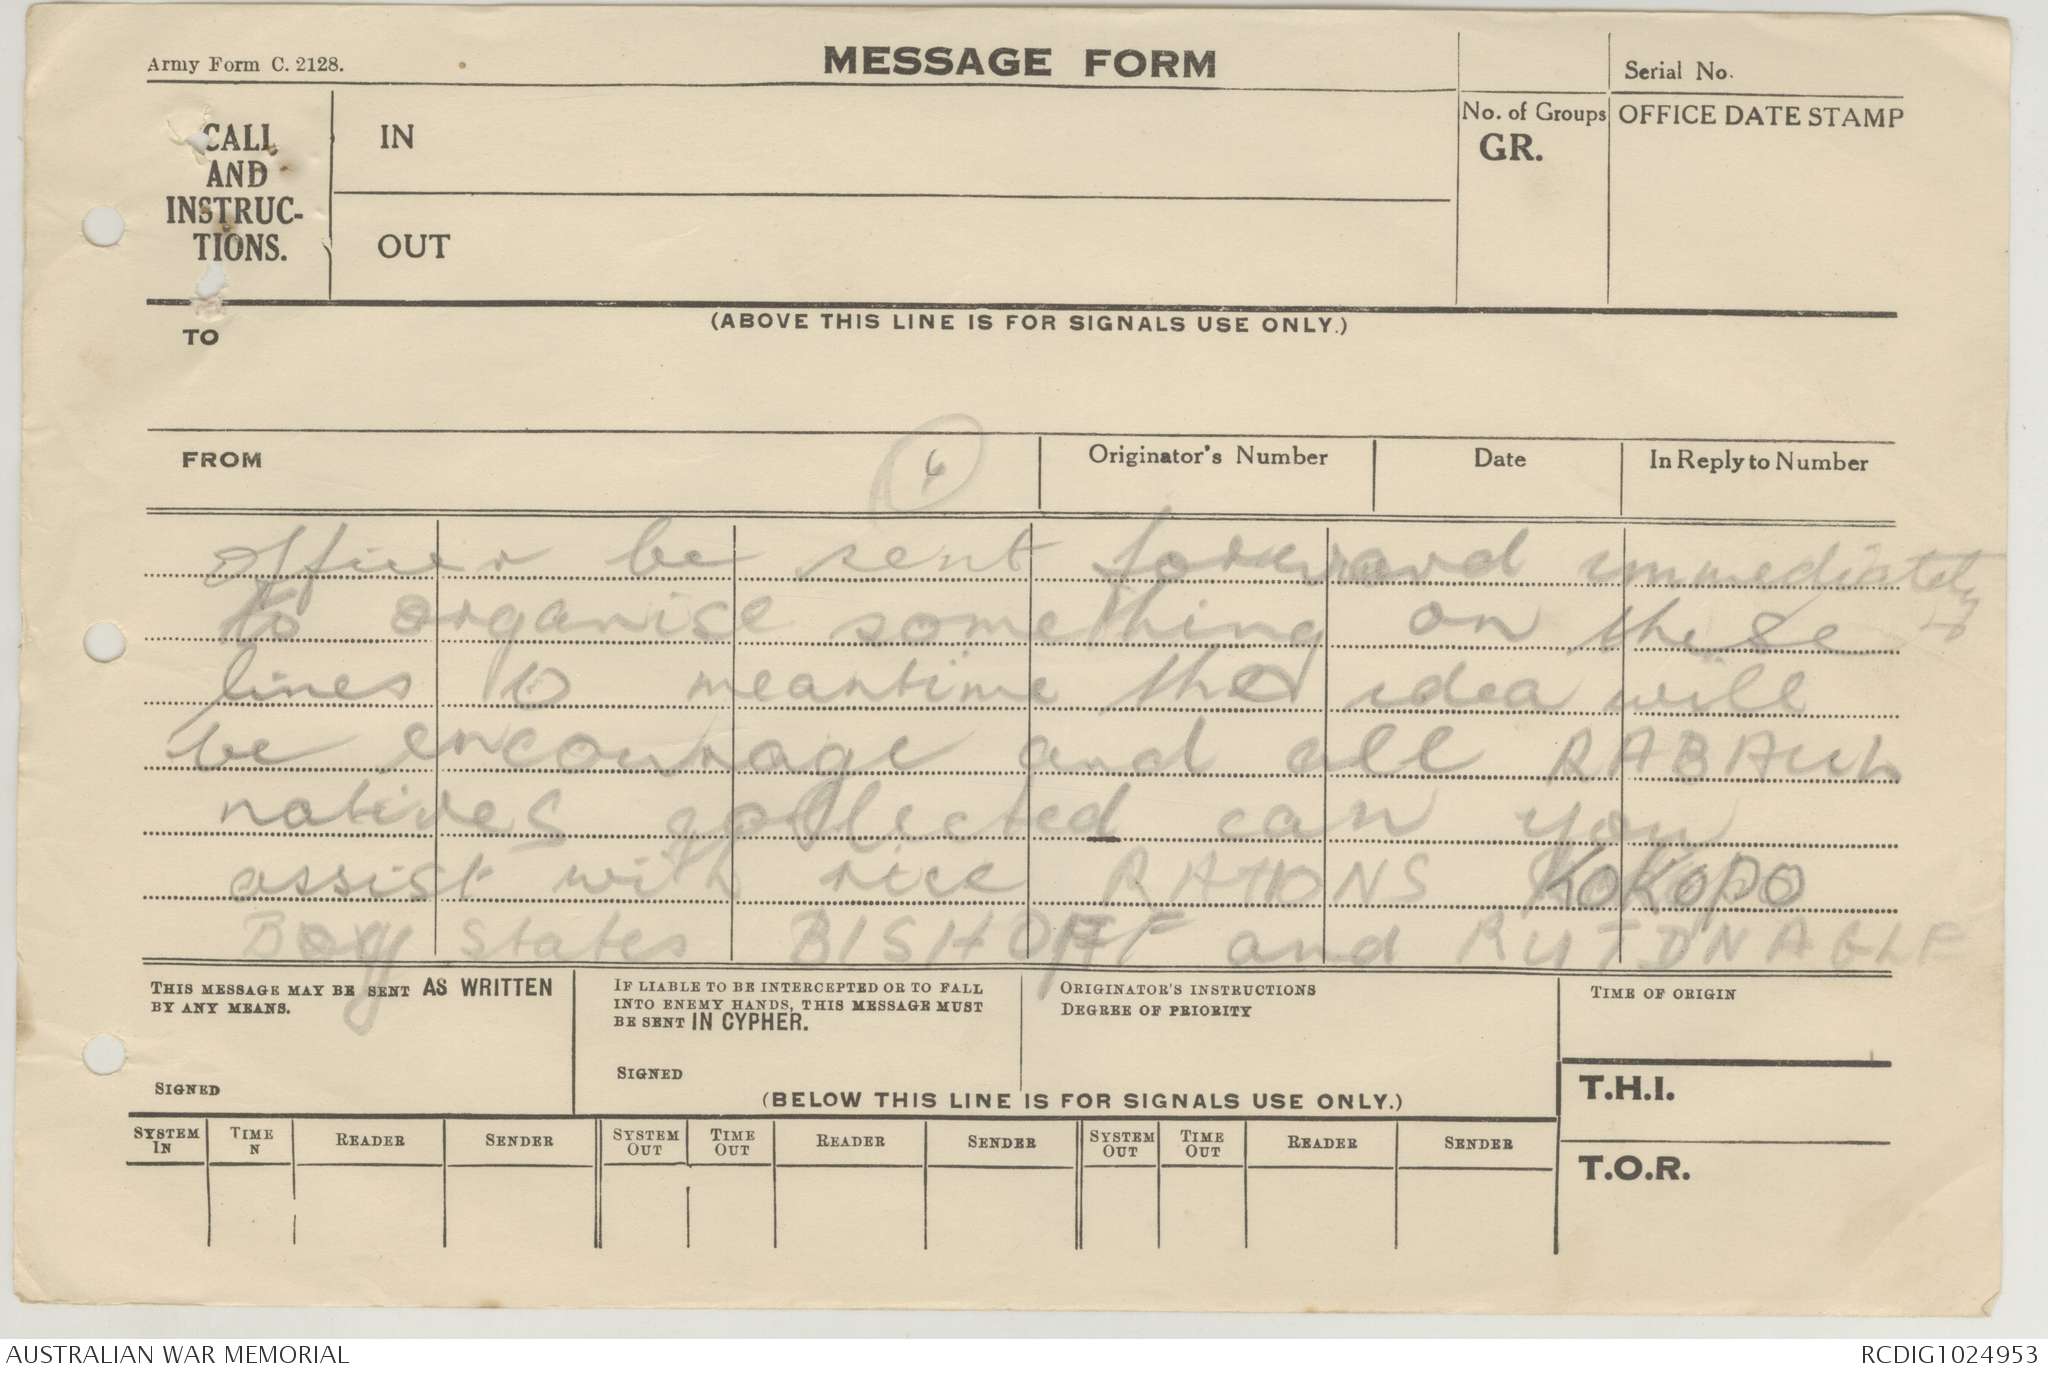 Army Form C. 2128.
MESSAGE FORM
Serial No.
CALL
AND
INSTRUC-
TIONS.
IN
OUT
No. of Groups
GR.
OFFICE DATE STAMP
(ABOVE THIS LINE IS FOR SIGNALS USE ONLY.)
TO
FROM
Originator's Number
Date
In Reply to Number
officer be sent forward immediately
to organise something on these
lines meantime the idea will
be encourage and all RABAUL
natives collected can you
assist with rice RATIONS KOKOPO
Boy states BISHOFF and
THIS MESSAGE MAY BE SENT AS WRITTEN
BY ANY MEANS.
SIGNED
IF LIABLE TO BE INTERCEPTED OR TO FALL
INTO ENEMY HANDS, THIS MESSAGE MUST
BE SENT IN CYPHER.
SIGNED
ORIGINATOR'S INSTRUCTIONS
DEGREE OF PRIORITY
TIME OF ORIGIN
T.H.I.
T.O.R.
(BELOW THIS LINE IS FOR SIGNALS USE ONLY.)
SYSTEM IN
TIME N
READER
SENDER
SYSTEM OUT
TIME OUT
READER
SENDER
SYSTEM OUT
TIME OUT
READER
SENDER
AUSTRALIAN WAR MEMORIAL
RCDIG1024953